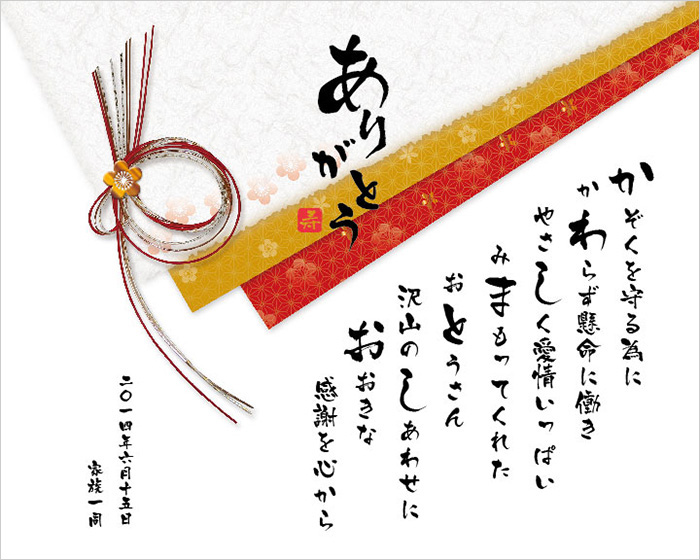 ありがとう
寿
かぞくを守る為に
かわらず懸命に働き
やさしく愛情いっぱい
みまもってくれた
おとうさん
沢山のしあわせに
おおきな
感謝を心から
二〇一四年六月十五日
家族一同